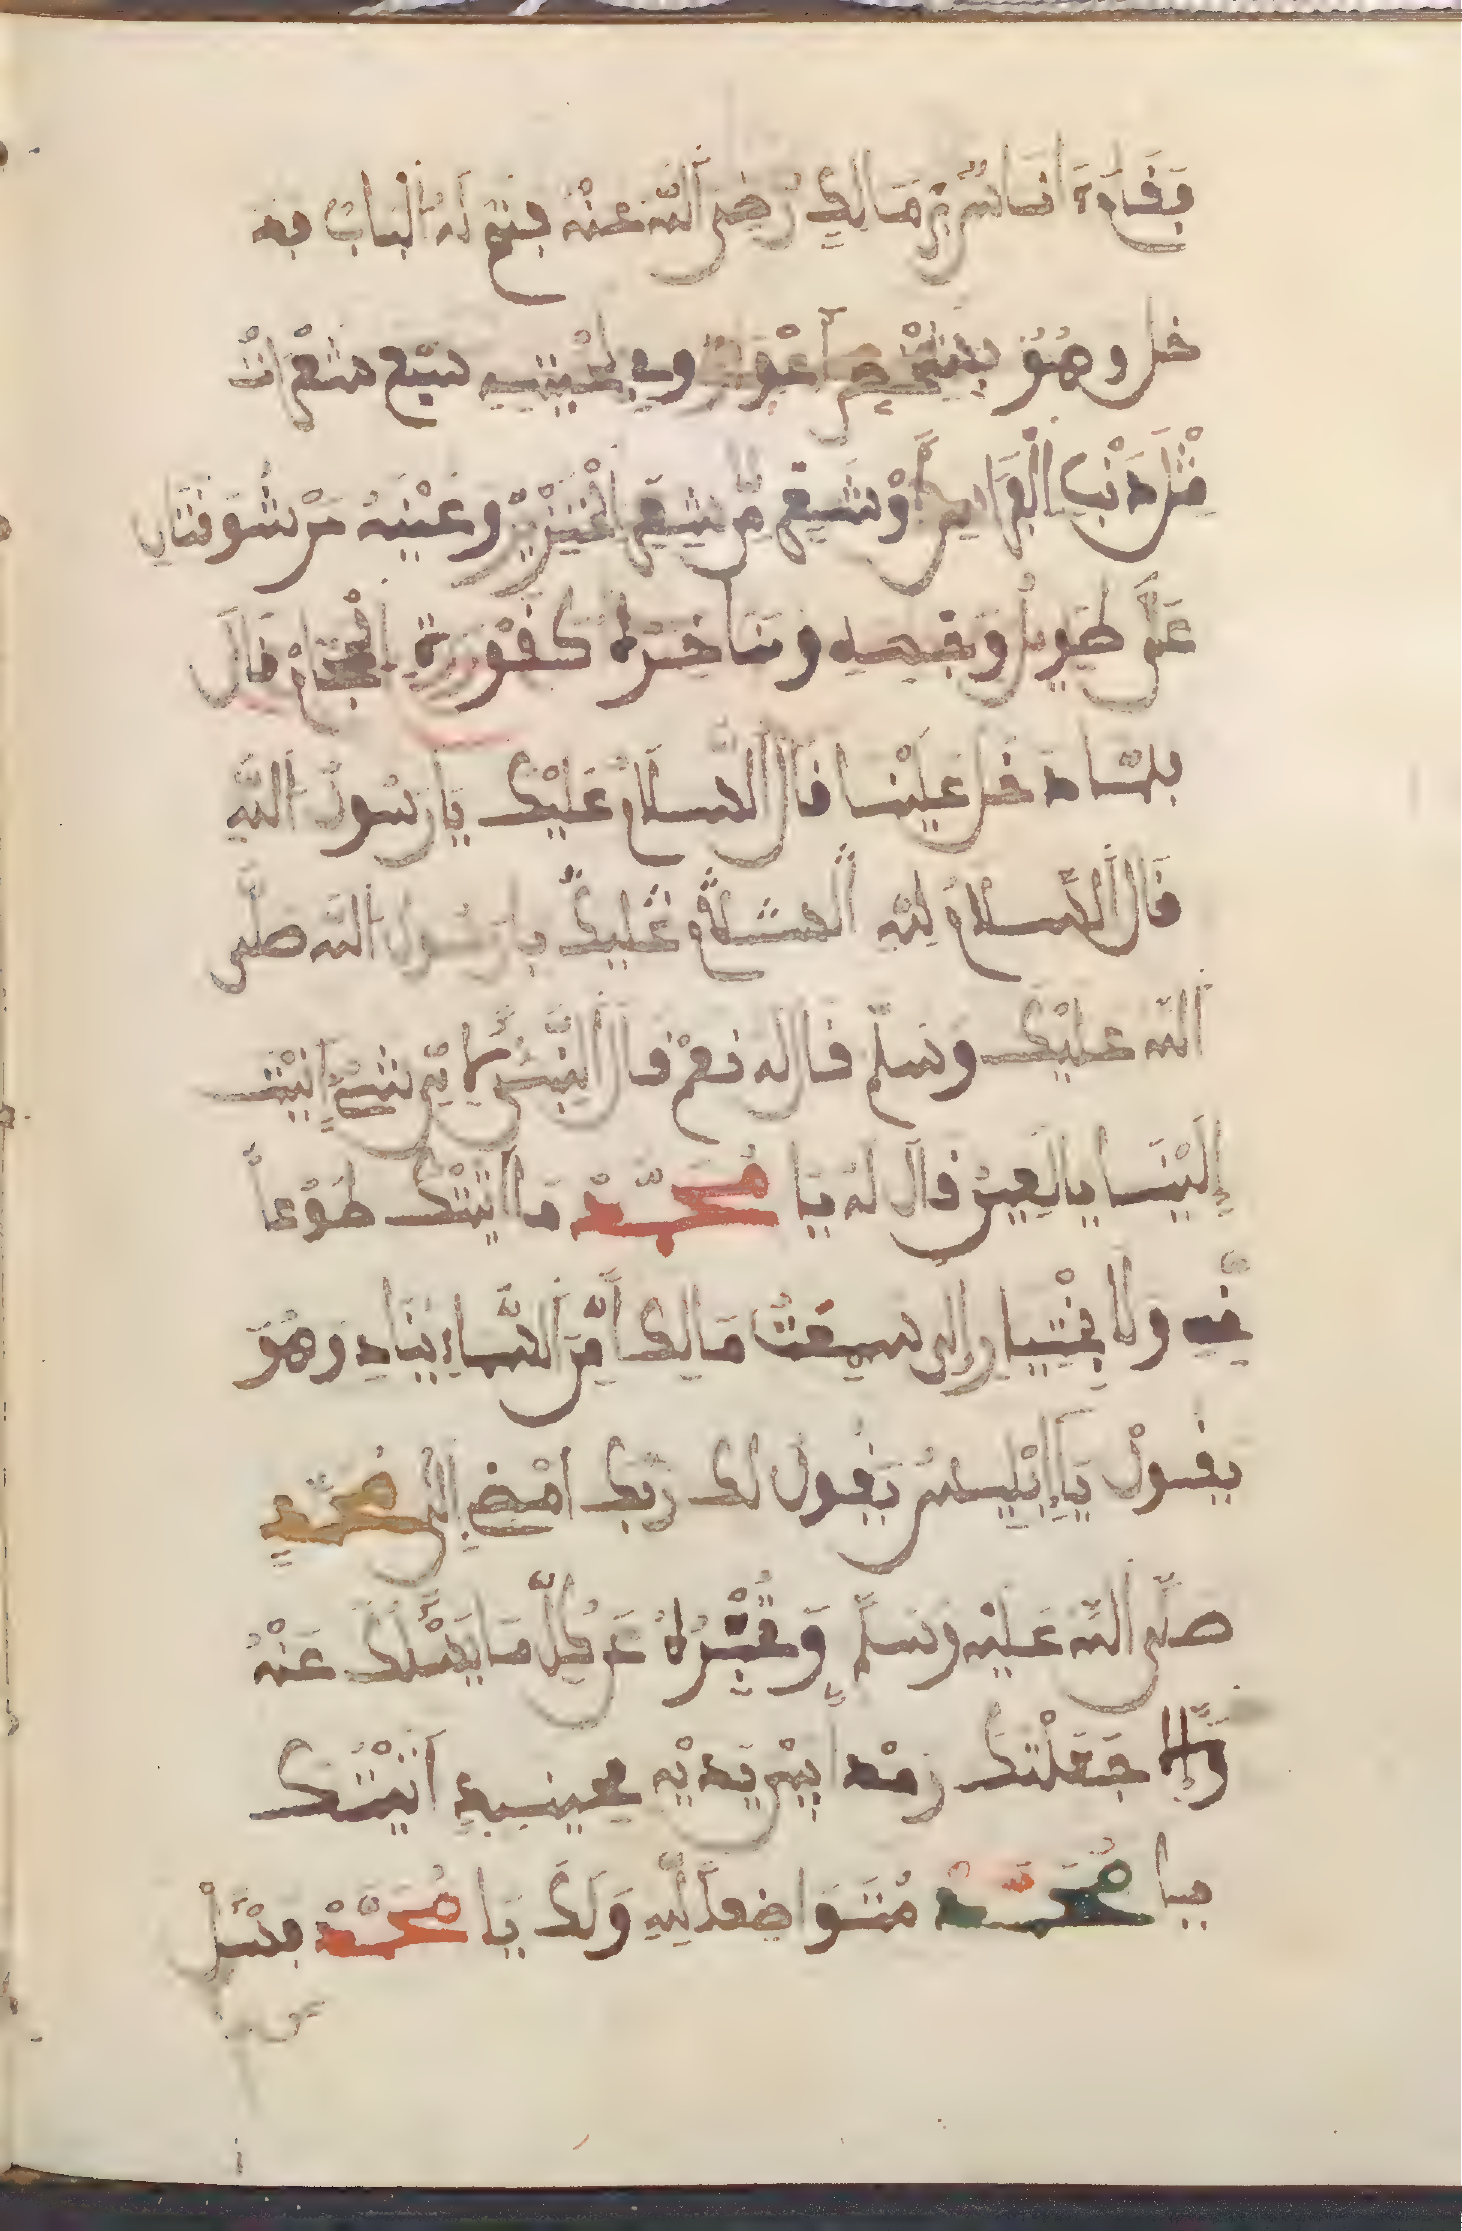 فقام انس بن مالك رضي الله عنه ففتح له الباب فد
خل وهو شيخ اعور وفي لحيته سبع شعرات
مثل ذنب الفرس أو شعر من شعر الخنزير وعينه مرشوقتان
على طويل وجهه ومناخره كفورة الحجام قال
فلما دخل علينا قال السلام عليك يا رسول الله
قال السلام لله السلام عليك يا رسول الله صلى
الله عليك وسلم قال له نعم قال النبي بأي شيء اتيت
إلينا يا لعين قال له يا محمد ما اتيتك طوعا
مني ولا اختيارا إلى سمعت مالكا من السماء يناد وهو
يقول يا ابليس يقول لك ربك امض الى محمد
صلى الله عليه وسلم وتخبره عن كل ما يسئلك عنه
وإلا جعلتك رمدا بين يديه اتيتك
يا محمد متواضعا لله ولك يا محمد فسئل
عن